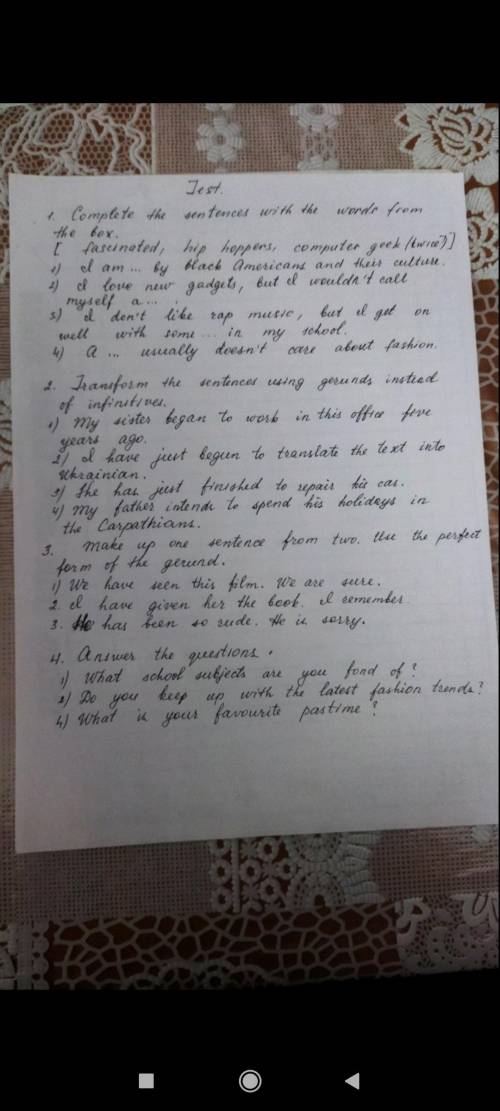 Test.
1. Complete the sentences with the words from
the box.
[ fascinated, hip hoppers, computer geek (twice)]
1) I am ... by black Americans and their culture.
2) I love new gadgets, but I wouldn't call
myself a ... .
3) I don't like rap music, but I get on
well with some ... in my school.
4) A ... usually doesn't care about fashion.
2. Transform the sentences using gerunds instead
of infinitives.
1) My sister began to work in this office five
years ago.
2) I have just begun to translate the text into
Ukrainian.
3) She has just finished to repair his car.
4) My father intends to spend his holidays in
the Carpathians.
3. Make up one sentence from two. Use the perfect
form of the gerund.
1) We have seen this film. We are sure.
2. I have given her the book. I remember.
3. He has been so rude. He is sorry.
4. Answer the questions.
1) What school subjects are you fond of?
2) Do you keep up with the latest fashion trends?
4) What is your favourite pastime?